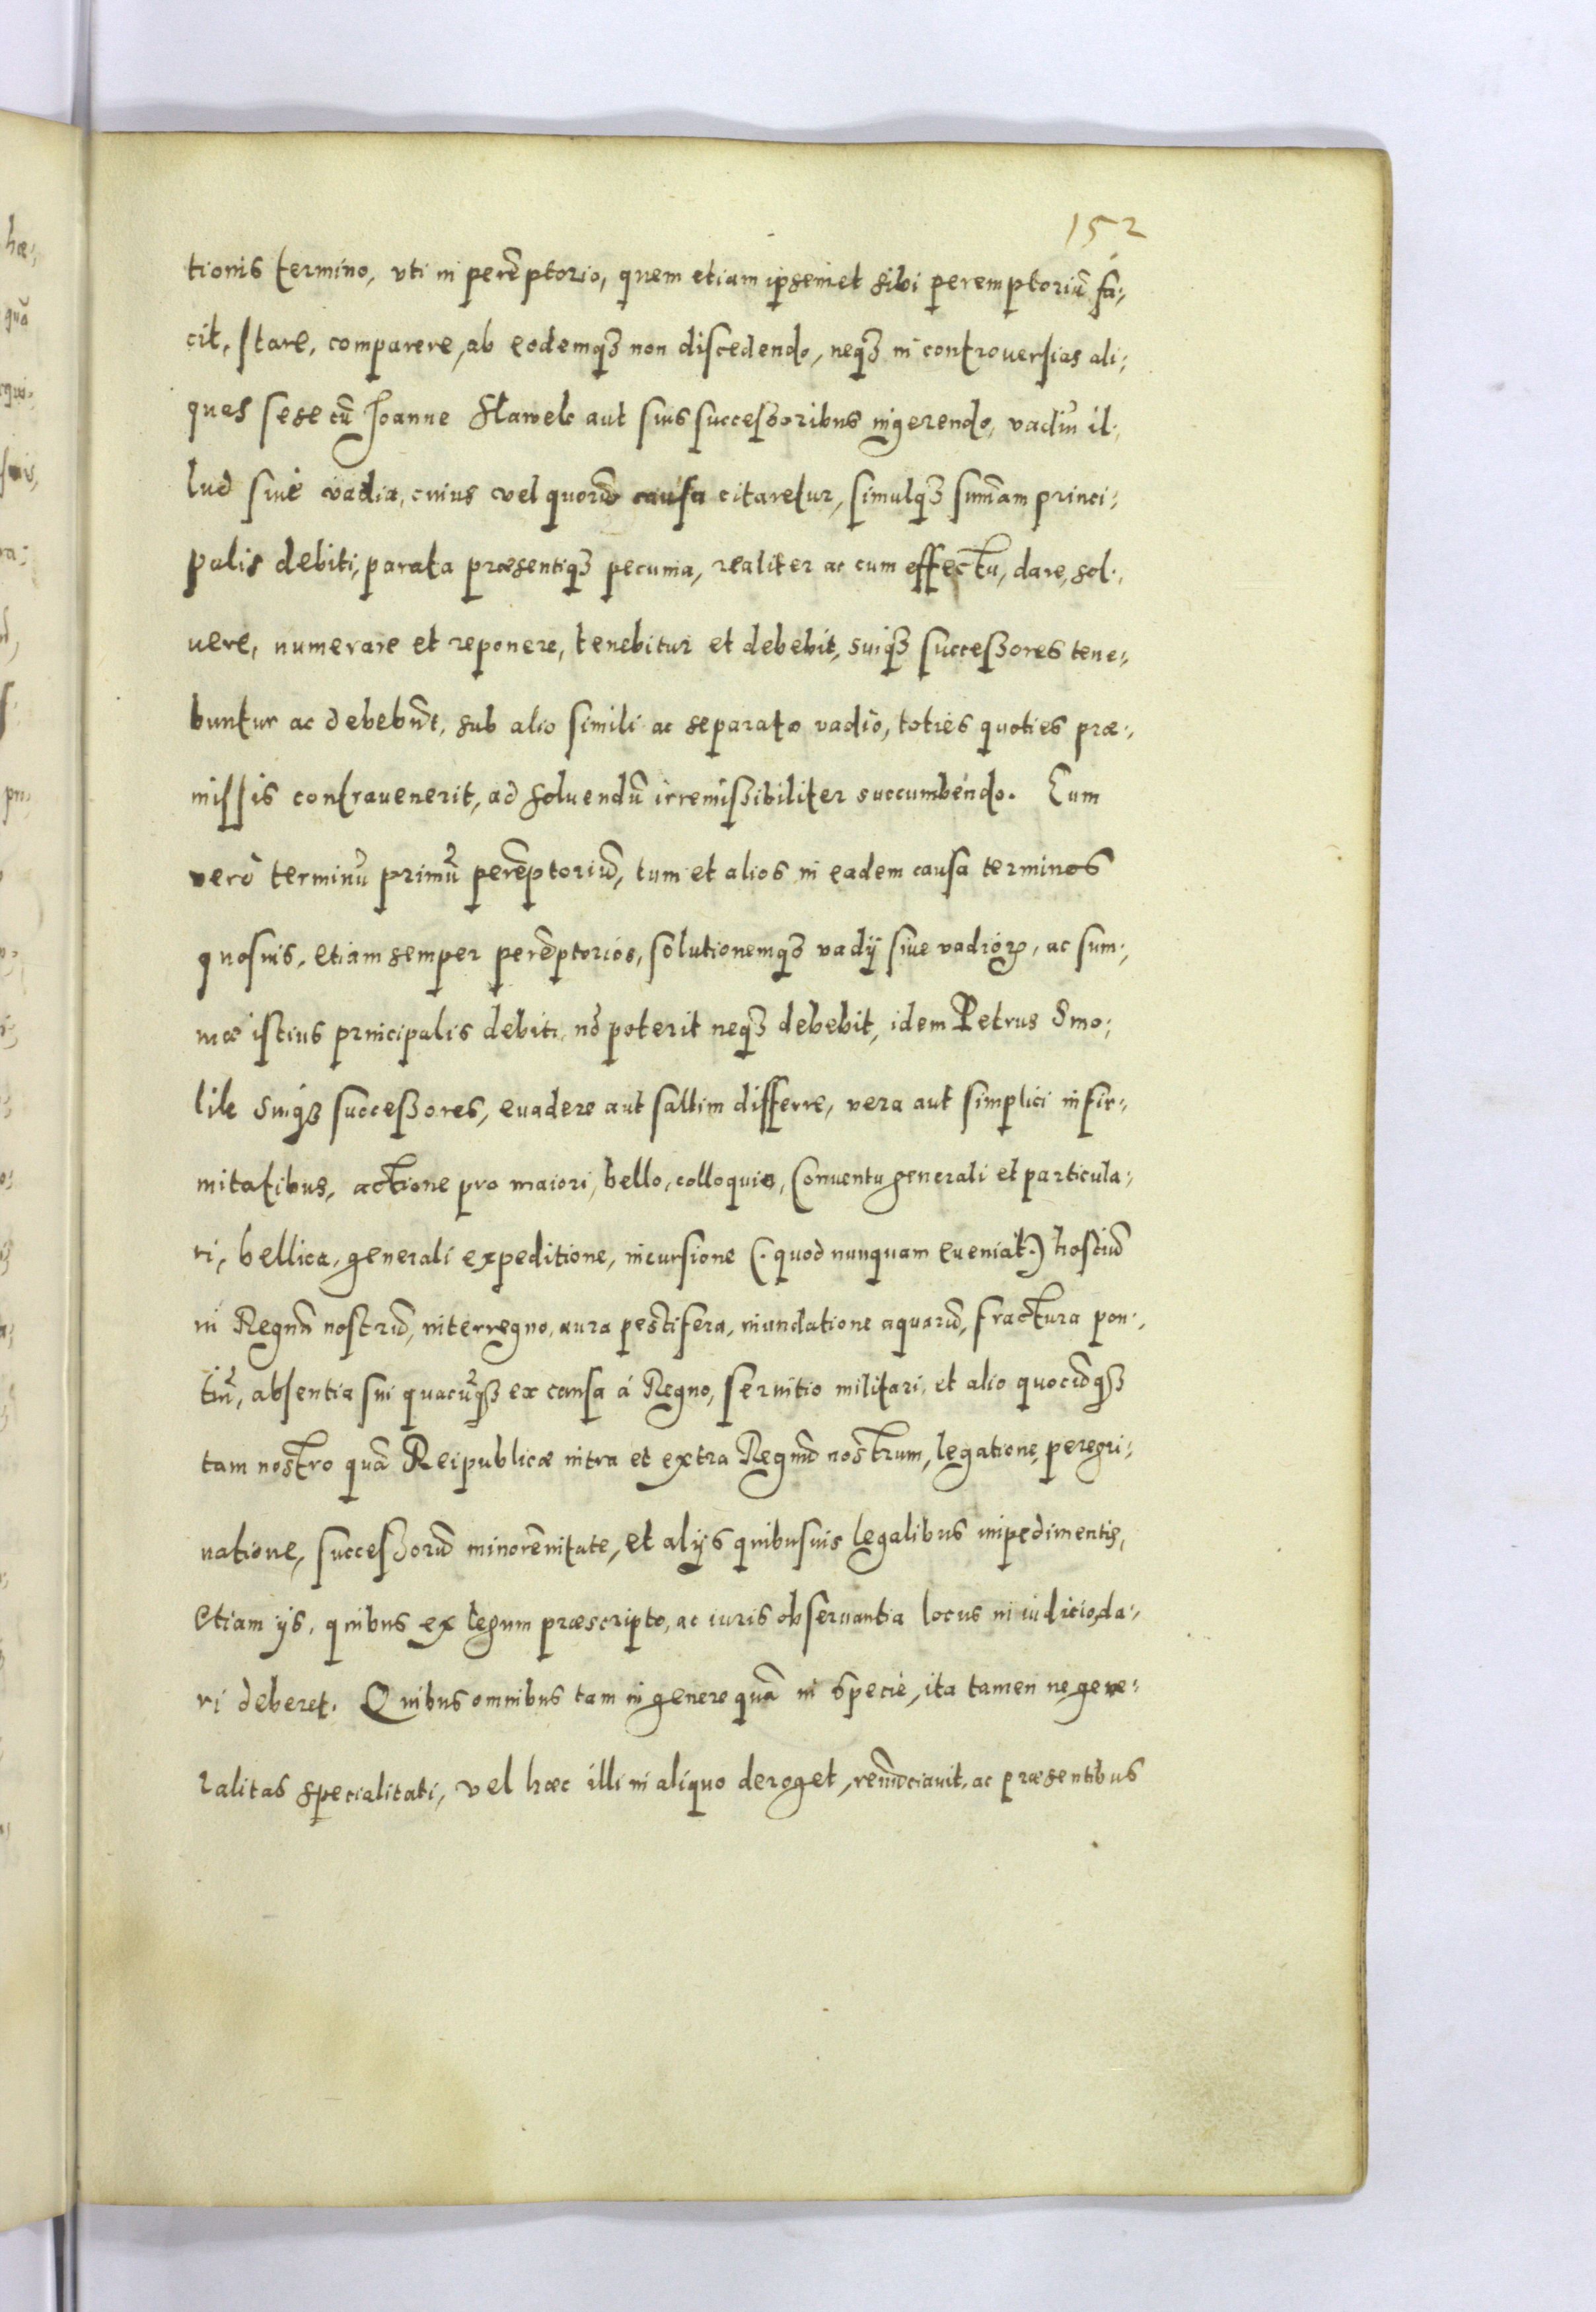 152
tionis termino, vti in perẽptorio, quem etiam ipsemet sibi peremptoriũ fa:,
cit, stare, comparere, ab eodemq3 non discedendo, neq3 in controuersias ali:
quas sese cũ Joanne Hawelc aut suis successoribus ingerendo, vadiũ il:
lud siue vadia, cuius vel quorũ causa citaretur, simulq3 sum̃am princi:
palis debiti, parata præsentiq3 pecunia, realiter ac cum effectu, dare, sol:
uere, numerare et reponere, tenebitur et debebit, suiq3 successores tene:
buntur ac debebũt, sub alio simili ac separato vadio, toties quoties præ:
missis contrauenerit, ad soluendũ irremissibiliter succumbendo. Eum
verò terminũ primũ perẽptoriũ, tum et alios in eadem causa terminos
quosuis, etiam semper perẽptorios, solutionemq3 vadij siue vadioꝝ, ac sum:
mæ istius principalis debiti, nõ poterit neq3 debebit, idem Petrus Smo:
lik Suiq3 successores, euadere aut saltim differre, vera aut simplici infir:
mitatibus, actione pro maiori, bello, colloquio, Conuentu generali et particula:
ri, bellica, generali expeditione, incursione (. quod nunquam eueniat .) hostiũ
in Regnũ nostrũ, interregno, aura pestifera, inundatione aquarũ, fractura pon:
tiũ, absentia sui quacũq3 ex causa á Regno, seruitio militari, et alio quocũq3
tam nostro quã Reipublicæ intra et extra Regnũ nostrum, legatione, peregri:
natione, successorũ minorẽnitate, et alijs quibusuis legalibus impedimentis,
etiam ijs, quibus ex legum præscripto, ac iuris obseruantia locus in iudicio da:
ri deberet. Quibus omnibus tam in genere quã in specie, ita tamen ne gene:
ralitas specialitati, vel hæc illi in aliquo deroget, renũciauit, ac præsentibus